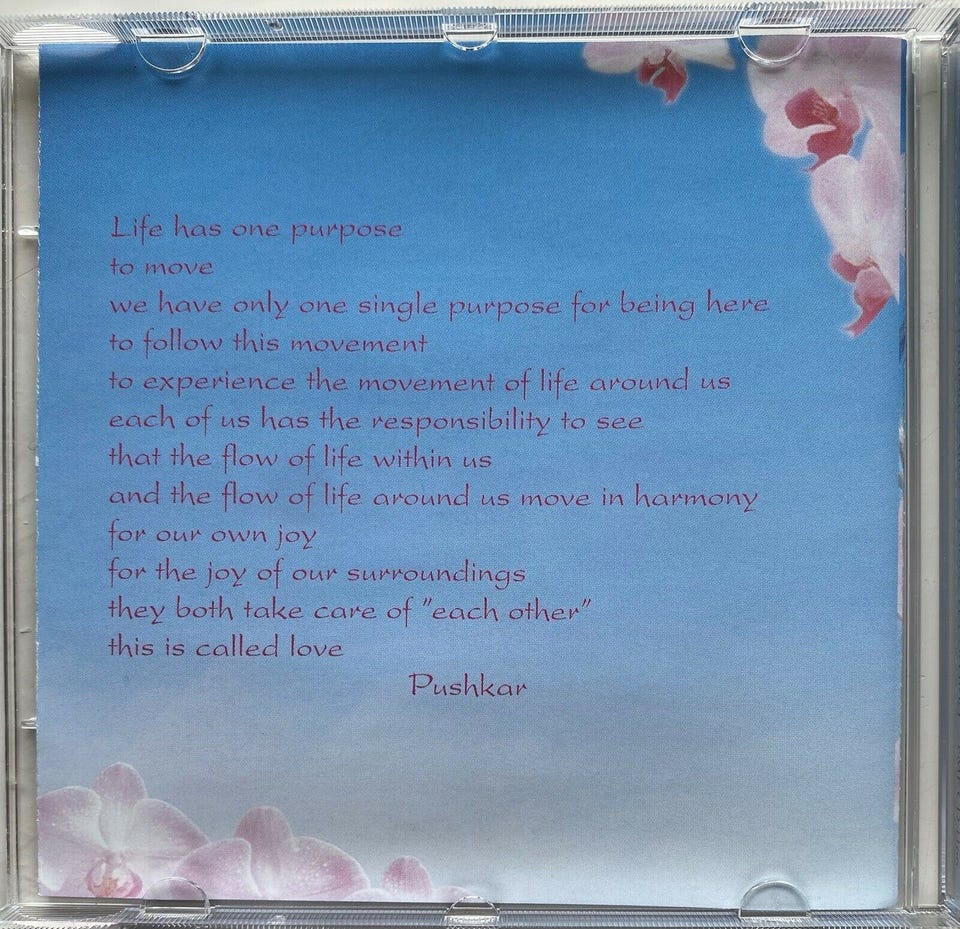 Life has one purpose
to move
we have only one single purpose for being here
to follow this movement
to experience the movement of life around us
each of us has the responsibility to see
that the flow of life within us
and the flow of life around us move in harmony
for our own joy
for the joy of our surroundings
they both take care of "each other"
this is called love
Pushkar